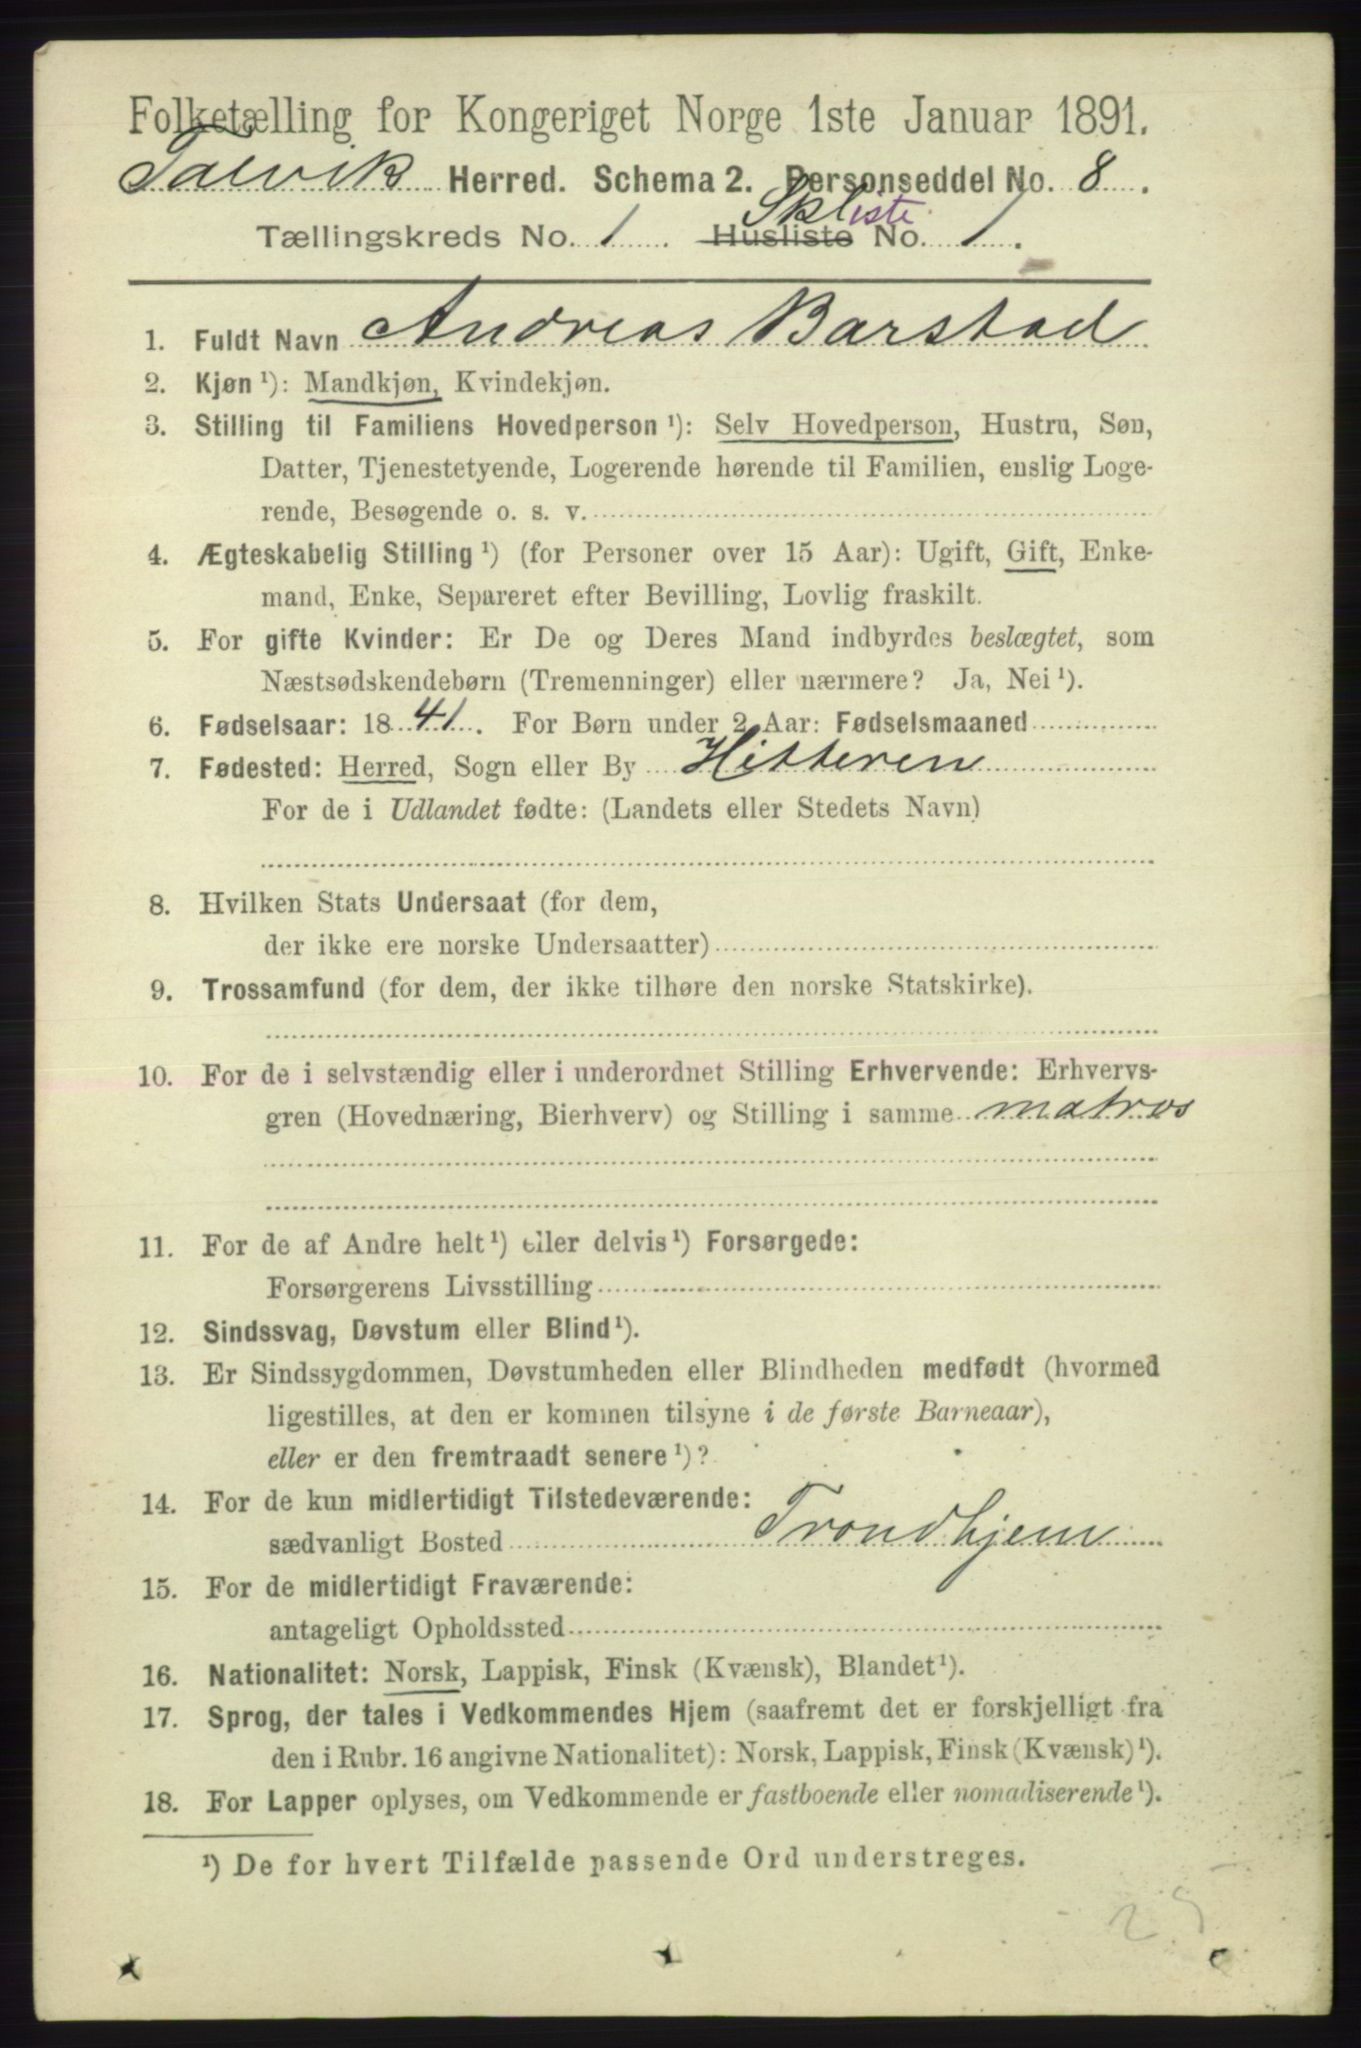 Folketælling for Kongeriget Norge 1ste Januar 1891.
Talvik Herred. Schema 2. Personseddel No. 8.
Skbliste
Tællingskreds No. 1 Husliste No. 1.
1. Fuldt Navn Andreas Barstad
2. Kjøn ¹): Mandkjøn, Kvindekjøn.
3. Stilling til Familiens Hovedperson ¹): Selv Hovedperson, Hustru, Søn,
Datter, Tjenestetyende, Logerende hørende til Familien, enslig Loge-
rende, Besøgende o. s. v.
4. Ægteskabelig Stilling ¹) (for Personer over 15 Aar): Ugift, Gift, Enke-
mand, Enke, Separeret efter Bevilling, Lovlig fraskilt.
5. For gifte Kvinder: Er De og Deres Mand indbyrdes beslægtet, som
Næstsødskendebørn (Tremenninger) eller nærmere? Ja, Nei ¹).
6. Fødselsaar: 1841. For Børn under 2 Aar: Fødselsmaaned
7. Fødested: Herred, Sogn eller By Hitteren
For de i Udlandet fødte: (Landets eller Stedets Navn)
8. Hvilken Stats Undersaat (for dem,
der ikke ere norske Undersaatter)
9. Trossamfund (for dem, der ikke tilhøre den norske Statskirke).
10. For de i selvstændig eller i underordnet Stilling Erhvervende: Erhvervs-
gren (Hovednæring, Bierhverv) og Stilling i samme matros
11. For de af Andre helt ¹) eller delvis ¹) Forsørgede:
Forsørgerens Livsstilling
12. Sindssvag, Døvstum eller Blind ¹).
13. Er Sindssygdommen, Døvstumheden eller Blindheden medfødt (hvormed
ligestilles, at den er kommen tilsyne i de første Barneaar),
eller er den fremtraadt senere ¹)?
14. For de kun midlertidigt Tilstedeværende:
sædvanligt Bosted Trondhjem
15. For de midlertidigt Fraværende:
antageligt Opholdssted
16. Nationalitet: Norsk, Lappisk, Finsk (Kvænsk), Blandet ¹).
17. Sprog, der tales i Vedkommendes Hjem (saafremt det er forskjelligt fra
den i Rubr. 16 angivne Nationalitet): Norsk, Lappisk, Finsk (Kvænsk) ¹).
18. For Lapper oplyses, om Vedkommende er fastboende eller nomadiserende ¹).
¹) De for hvert Tilfælde passende Ord understreges.